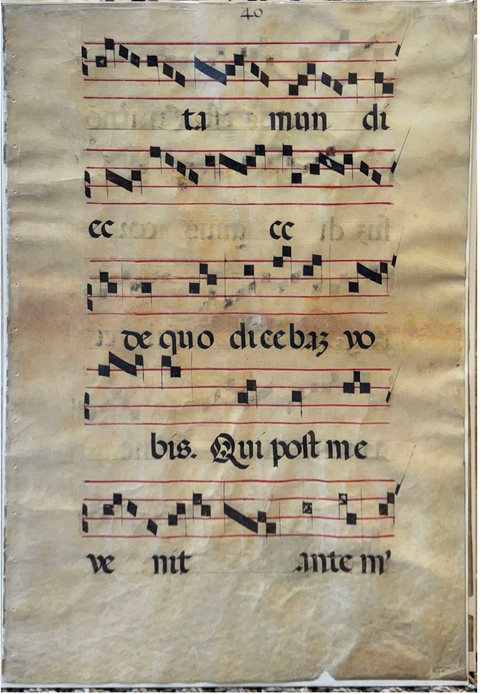 40
ta mun di
ec ec
de quo diceba vo
bis. Qui post me
ve nit ante m'